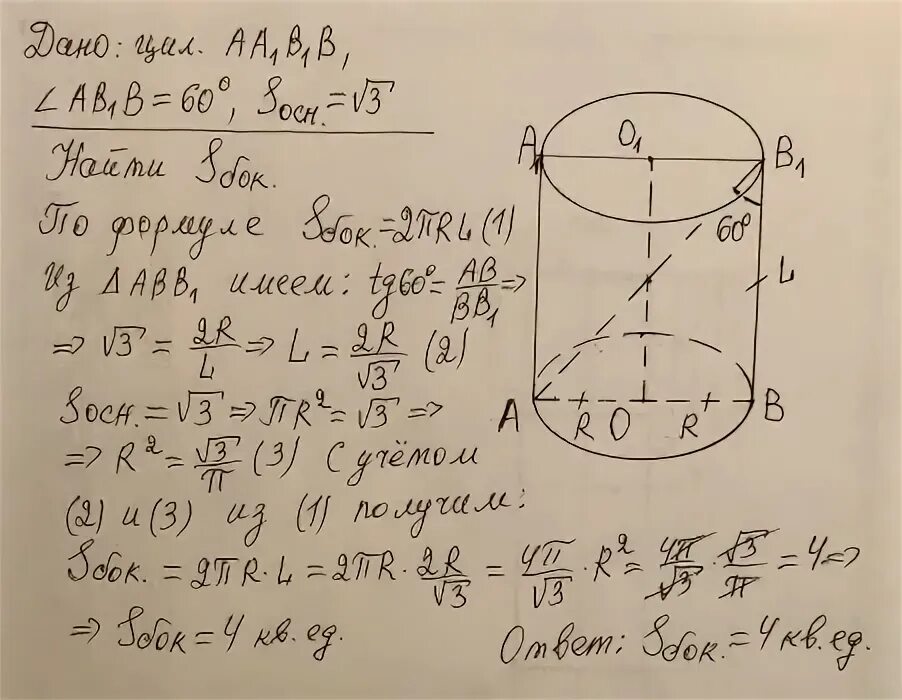 Дано: цил. AA₁B₁B,
∠AB₁B = 60°, Sосн. = √3
Найти Sбок.
По формуле Sбок. = 2πRL (1)
Из △ABB₁ имеем: tg60° = AB/BB₁ =>
=> √3 = 2R/L => L = 2R/√3 (2)
Sосн. = √3 => πR² = √3 =>
=> R² = √3/π (3) С учётом
(2) и (3) из (1) получим:
Sбок. = 2πR · L = 2πR · 2R/√3 = 4π/√3 · R² = 4π/√3 · √3/π = 4 =>
=> Sбок = 4 кв. ед.
Ответ: Sбок. = 4 кв. ед.
A₁ O₁ B₁
60°
L
A R O R B